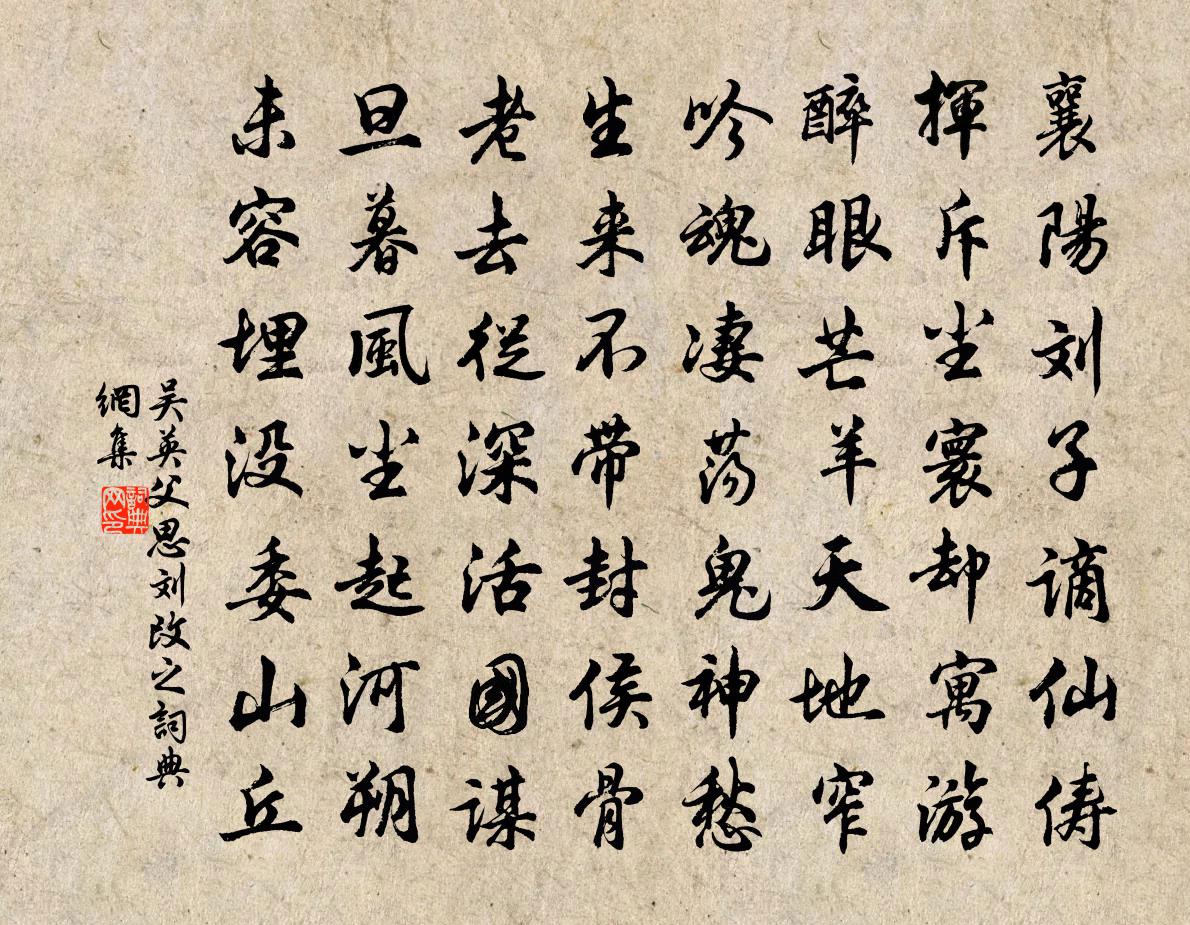 襄陽刘子謫仙俦
揮斥尘寰却寓游
醉眼芒羊天地窄
吟魂凄荡鬼神愁
生来不带封侯骨
老去從深活國谋
旦暮風尘起河朔
未容埋没委山丘
吴英父思刘改之詞典
網集
詞典
网印